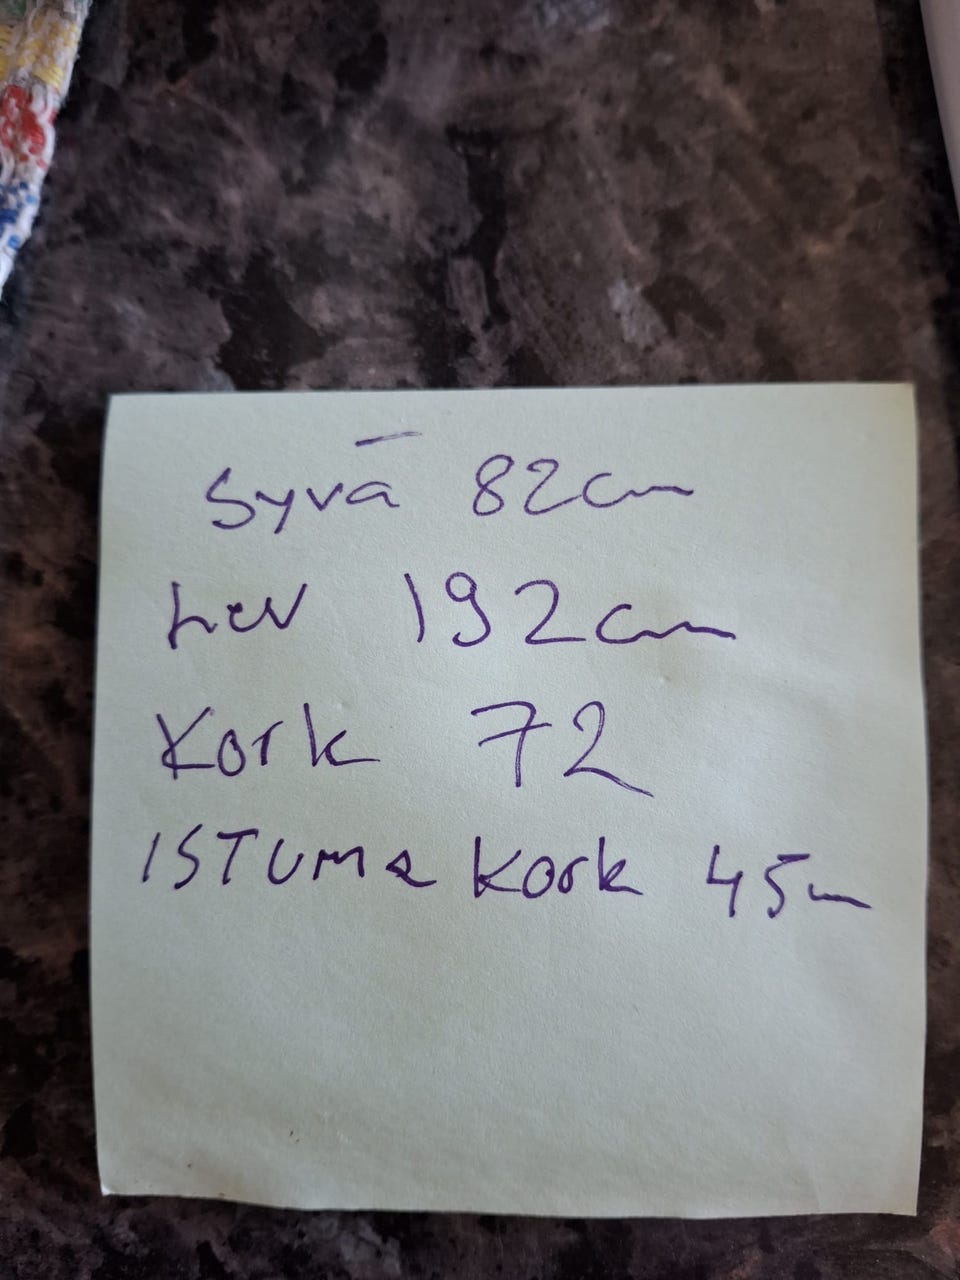 Syvä 82cm
Lev 192cm
Kork 72
ISTUMA Kork 45cm